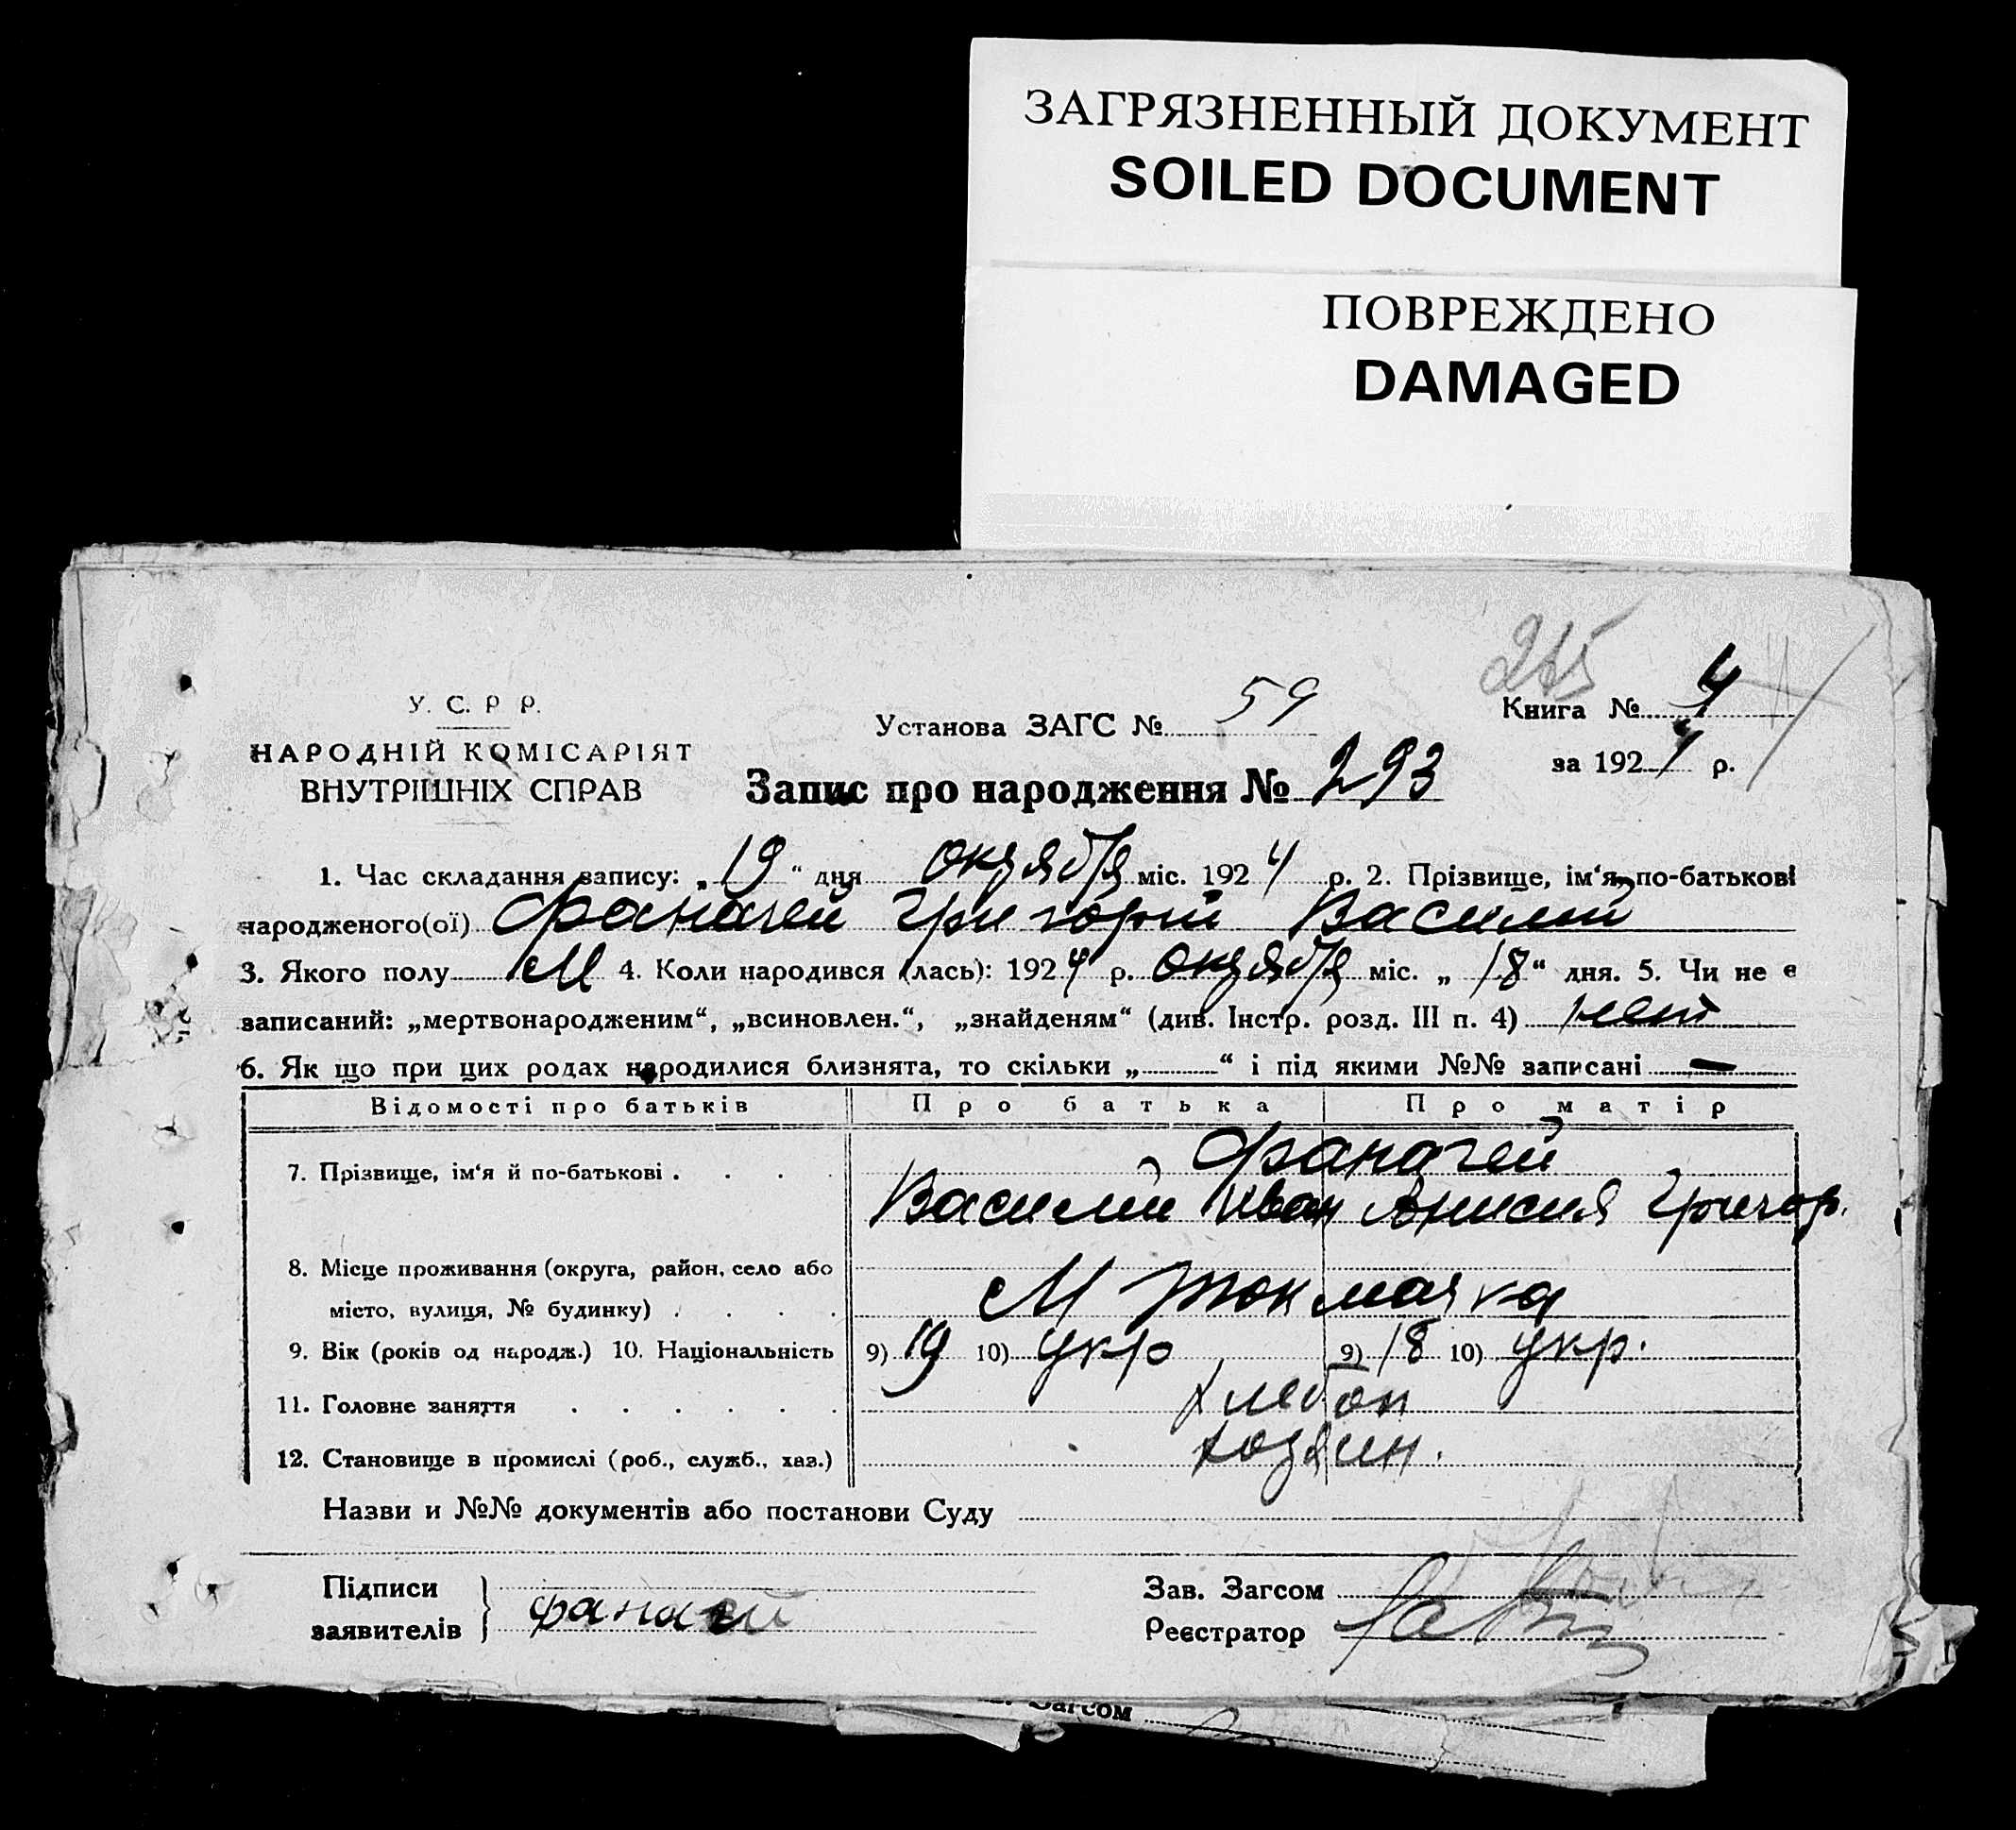 ЗАГРЯЗНЕННЫЙ ДОКУМЕНТ
SOILED DOCUMENT
ПОВРЕЖДЕНО
DAMAGED
У. С. Р Р.
НАРОДНІЙ КОМІСАРІЯТ
ВНУТРІШНІХ СПРАВ
Установа ЗАГС № 59
Книга № 4
за 1924 р.
Запис про народження № 293
1. Час складання запису: „19“ дня октября міс. 1924 р. 2. Прізвище, ім‘я, по-батькові
народженого(ої) Фаначей Григорій Василий
3. Якого полу М 4. Коли народився (лась): 1924 р. октября міс. „18“ дня. 5. Чи не є
записаний: „мертвонародженим“, „всиновлен.“, „знайденям“ (див. Інстр. розд. III п. 4) нет
6. Як що при цих родах народилися близнята, то скільки „ “ і під якими №№ записані —
Відомості про батьків Про батька Про матір
7. Прізвище, ім‘я й по-батькові . . . . Фаначей
Василий Иван Анисия Григор.
8. Місце проживання (округа, район, село або
місто, вулиця, № будинку) . . . . М Токмачка
9. Вік (років од народж.) 10. Національність 9) 19 10) укр 9) 18 10) укр.
11. Головне заняття . . . . . . хлебоп
12. Становище в промислі (роб., служб., хаз.) хозяин.
Назви и №№ документів або постанови Суду
Підписи
заявителів
Зав. Загсом
Реєстратор
Загсом